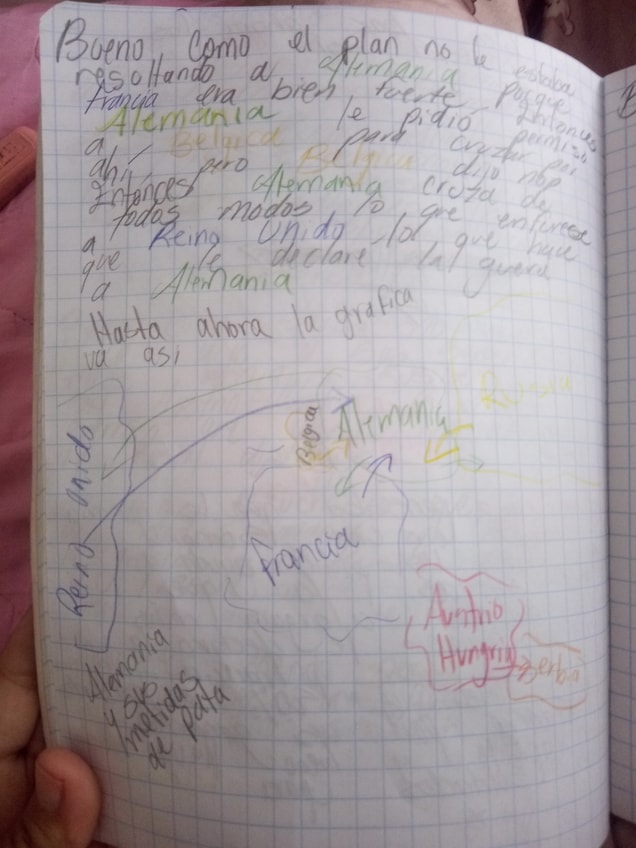 Bueno, como el plan no le estaba
resoltando a Alemania porque
francia era bien fuerte Entonces
Alemania le pidió permiso
a Belgica para cruzar por
ahí pero Belgica dijo nop
Entonces Alemania cruza de
todos modos lo que enfurese
a Reino Unido lo que hace
que le declare la guerra
a Alemania
Hasta ahora la grafica
va asi
Russia
Alemania
Belgica
Reino Unido
francia
Austrio
Hungria
Serbia
Alemania
y sus
metidas
de pata